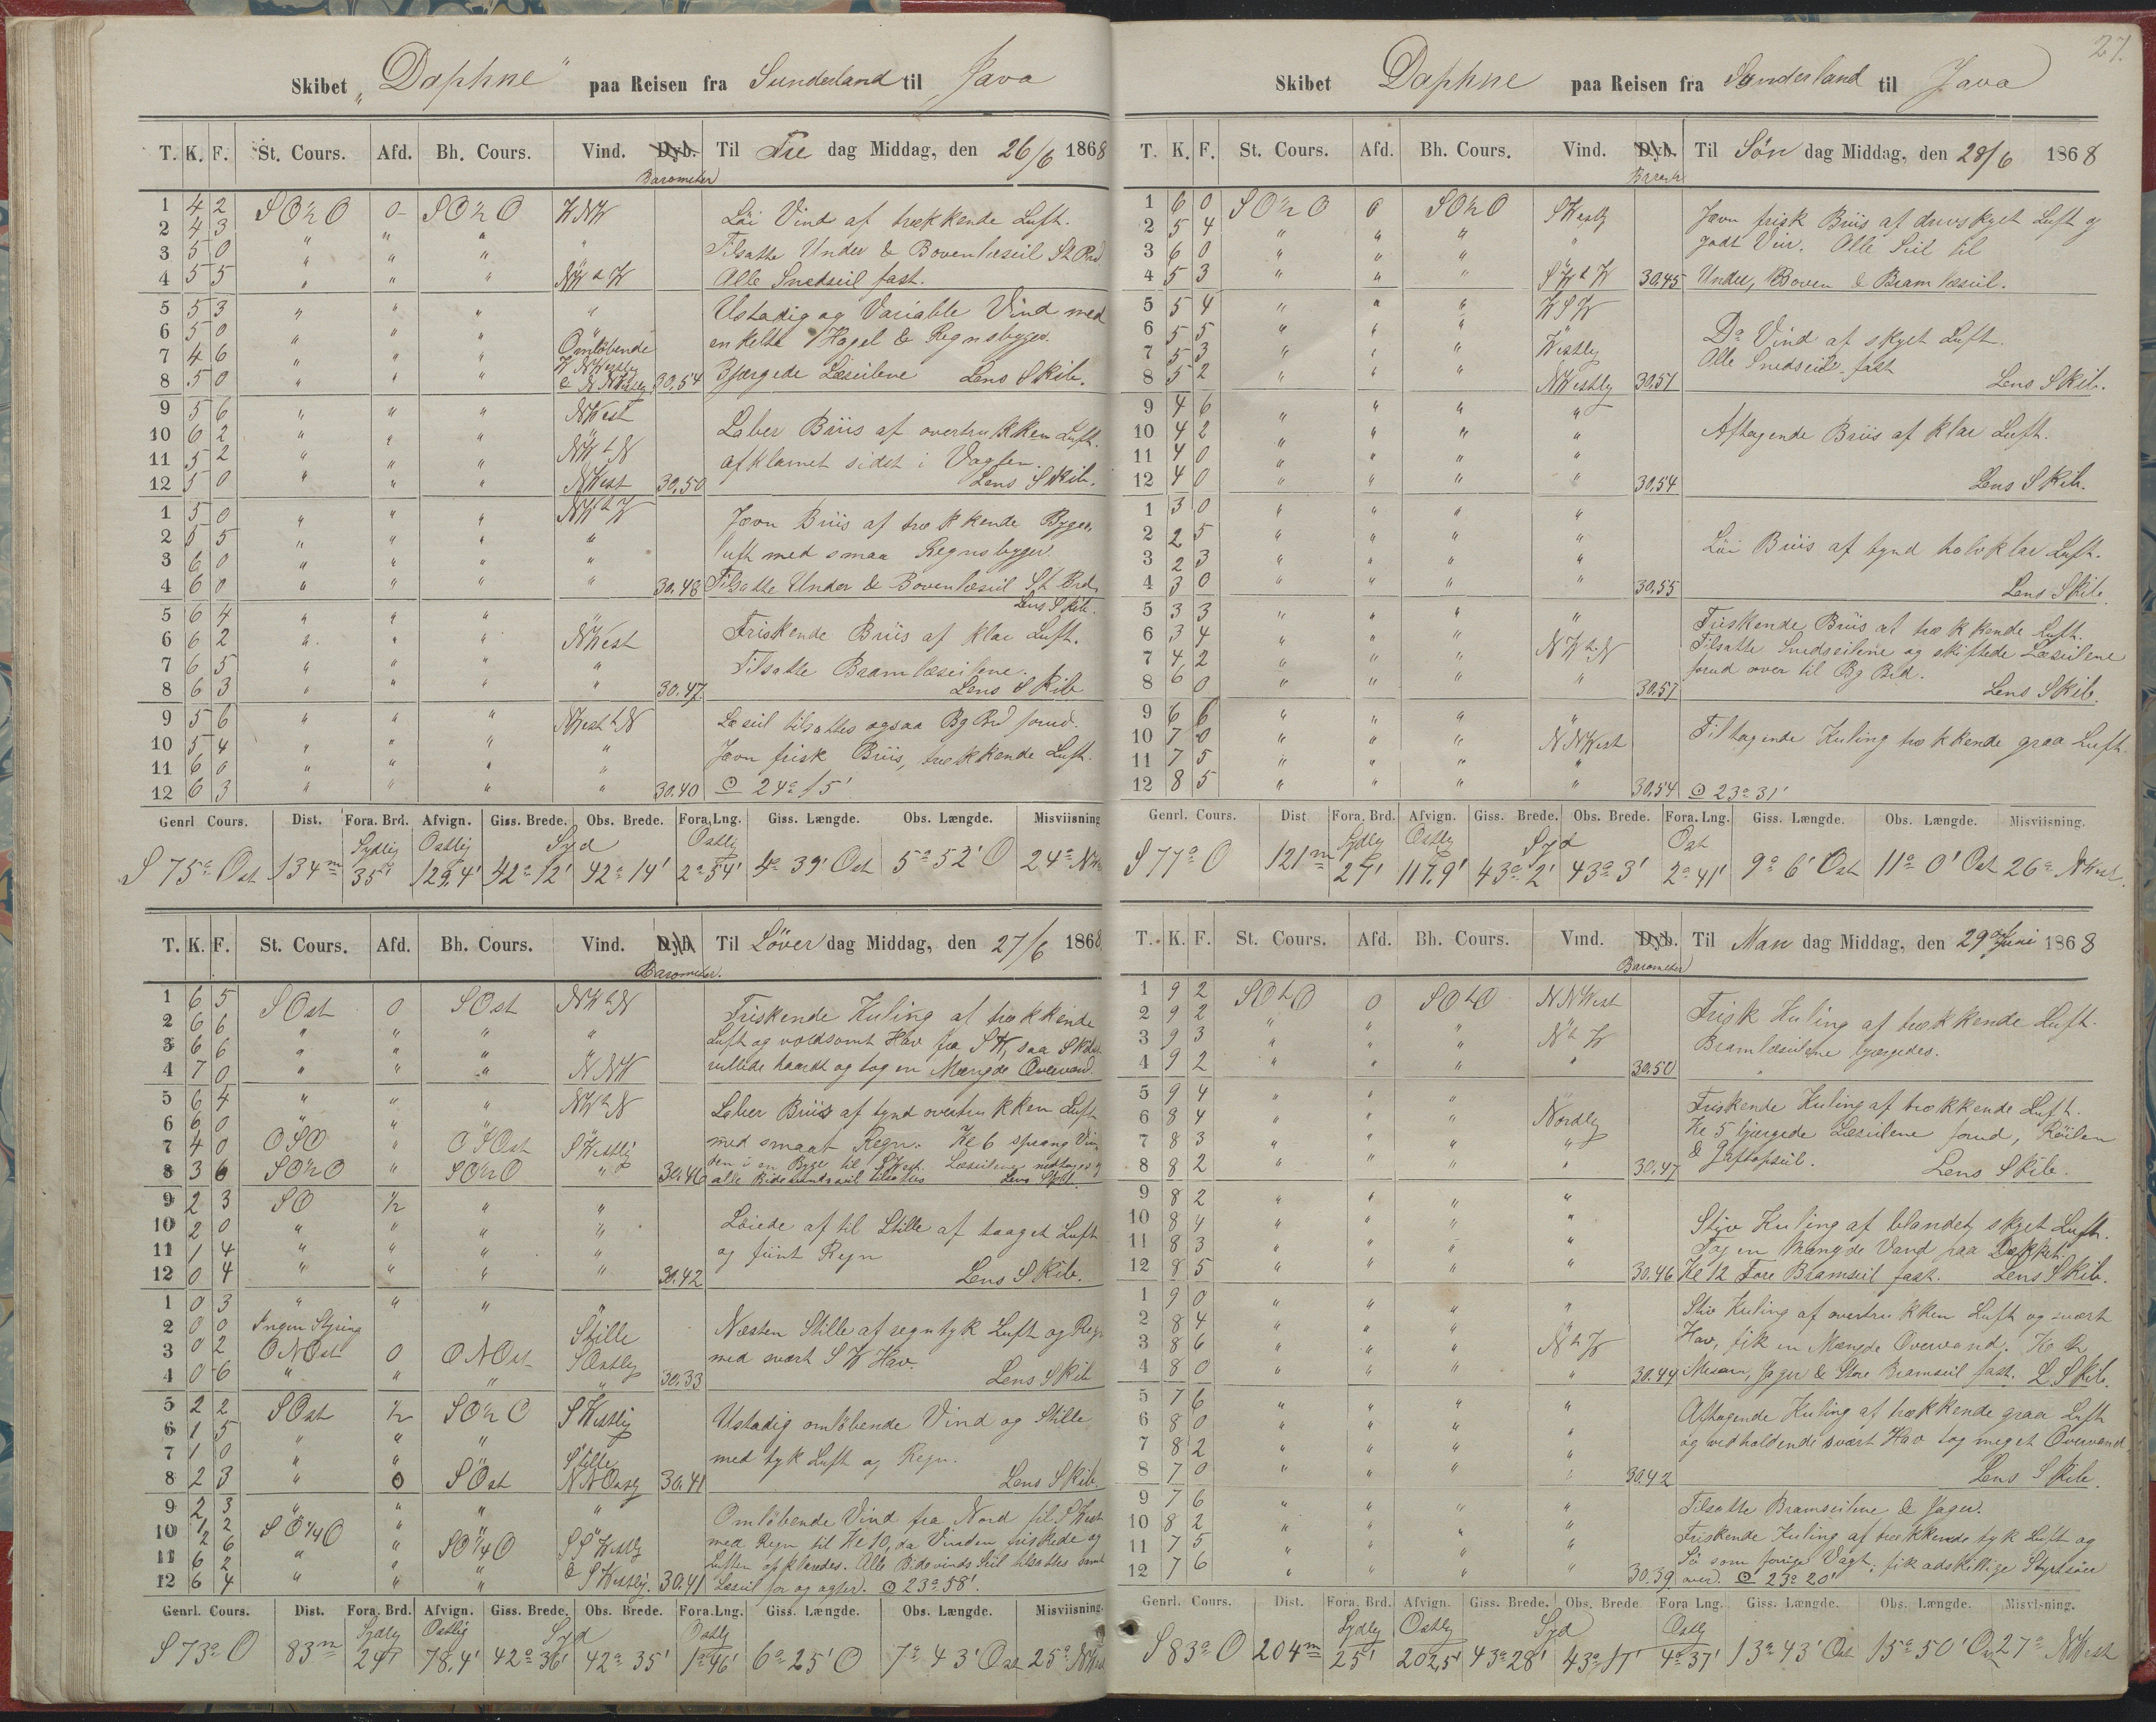 Skibet „Daphne“ paa Reisen fra Sunderland til Java
T. K. F. St. Cours. Afd. Bh. Cours. Vind. Dyb. Til Fre dag Middag, den 26/6 1868
Barometer
1 4 2 SO½O 0 SO½O WNW Löi Vind af trækkende Luft.
2 4 3 " " " " Tilsatte Under & Bovenlæseil St Brd.
3 5 0 " " "
4 5 5 " " " NW t W Alle Snedseil fast.
5 5 3 " " " " Ustadig og Variable Vind med
6 5 0 " " " Omlöbende enkelte Hagel & Regnsbyger.
7 4 6 " " " WNWestly
8 5 0 " " " & NNWestly 30,54 Bjærgede Læseilene Lens Skib.
9 5 6 " " " NWest Laber Briis af overtrukken Luft.
10 6 2 " " " NW t N
11 5 2 " " " afklarnet sidst i Vagten.
12 5 0 " " " NWest 30,50 Lens Skib.
1 5 0 " " " NW t W Jævn Briis af trækkende Byge-
2 5 5 " " " " luft med smaa Regnsbyger.
3 6 0 " " " "
4 6 0 " " " " 30.48 Tilsatte Under & Bovenlæseil St Brd
Lens Skib.
5 6 4 " " " " Friskende Briis af klar Luft.
6 6 2 " " " NWest
7 6 5 " " " " Tilsatte Bramlæseilene.
8 6 3 " " " " 30.47 Lens Skib
9 5 6 " " " NWest t N Læseil tilsattes ogsaa Bg Brd forud.
10 5 4 " " " " Jævn frisk Briis, trækkende Luft.
11 6 0 " " " "
12 6 3 " " " " 30.40 ⊙ 24° 15'
Genrl Cours. Dist. Fora. Brd. Afvign. Giss. Brede. Obs. Brede. Fora. Lng. Giss. Længde. Obs. Længde. Misviisning
Sydlig Ostlig Syd Ostlig
S 75° Ost 134m 35' 129,4' 42° 12' 42° 14' 2° 54' 4° 39' Ost 5° 52' O 24° NW
T. K. F. St. Cours. Afd. Bh. Cours. Vind. Dyb. Til Löver dag Middag, den 27/6 1868
Barometer.
1 6 5 SOst 0 SOst NW t N Friskende Kuling af trækkende
2 6 6 " " " " Luft og voldsomt Hav fra SW, saa Skibet
3 6 6 " " "
4 7 0 " " " NNW rullede haardt og tog en Mængde Overvand.
5 6 4 " " " NW t N Laber Briis af tynd overtrukken Luft
6 6 0 " "
7 4 0 OSO " OSOst SWestlig med smaat Regn. Kl 6 sprang Vin
8 3 6 SO½O " SO½O " 30.46 den i en Byge til SWest. Læseilene nedtoges og
alle Bidevindsseil tilsattes Lens Skib.
9 2 3 SO ½ " " Löiede af til Stille af taaget Luft
10 2 0 " " " "
11 1 4 " " " " og fiint Regn
12 0 4 " " " " 30.42 Lens Skib.
1 0 3 " " " "
2 0 0 Ingen Styring Stille Næsten Stille af regntyk Luft og Regn
3 0 2 ONOst 0 ONOst SOstly med svært SW Hav.
4 0 6 " " " " 30.33 Lens Skib
5 2 2 SOst ½ SO½O SWestlig Ustadig omlöbende Vind og Stille
6 1 5 " " "
7 1 0 " " Stille med tyk Luft og Regn.
8 2 3 " 0 SOst NNOstly 30.41 Lens Skib.
9 2 3 " " " " Omlöbende Vind fra Nord til SWest
10 ½ 2 SO¼O " SO¼O SSWestly med Regn til Kl 10, da Vinden friskede og
11 6 2 " " " Luften opklaredes. Alle Bidevinds Seil tilsattes samt
12 6 4 " " " & SWestlig. 30.41 Læseil for og agter. ⊙ 23° 58'.
Genrl. Cours. Dist. Fora. Brd. Afvign. Giss. Brede. Obs. Brede. Fora. Lng. Giss. Længde. Obs. Længde. Misviisning.
Sydlig Ostlig Syd Ostly
S 73° O 83m 24' 78.4' 42° 36' 42° 35' 1° 46' 6° 25' O 7° 43' Ost 25° NWest
27.
Skibet Daphne paa Reisen fra Sunderland til Java
T. K. F. St. Cours. Afd. Bh. Cours. Vind. Dyb. Til Søn dag Middag, den 28/6 1868
1 6 0 SO½O 0 SO½O SWestlig Jævn frisk Briis af druvskyet Luft og
2 5 4 " " " godt Veir. Alle Seil til
3 6 0 " " " "
4 5 3 " " " SW t W 30.45 Under, Boven & Bramlæseil.
5 5 4 " " " WSW
6 5 5 " " " Do Vind af skyet Luft.
7 5 3 " " " Westly Alle Snedseile fast
8 5 2 " " " NWestly 30.51 Lens Skib.
9 4 6 " " " "
10 4 2 " " " " Aftagende Briis af klar Luft.
11 4 0 " " " "
12 4 0 " " " " 30,54 Lens Skib.
1 3 0 " " " "
2 2 5 " " " " Löi Briis af tynd halvklar Luft.
3 2 3 " " " "
4 3 0 " " " " 30.55 Lens Skib.
5 3 3 " " " " Friskende Briis af trækkende Luft.
6 3 4 " " " NW t. N Tilsatte Snedseilene og skiftede Læseilene
7 4 2 " " " forud over til Bg Brd.
8 6 0 " " " " 30.57 Lens Skib.
9 6 6 " " " "
10 7 0 " " " NNWest Tiltagende Kuling trækkende graa Luft.
11 7 5 " " " "
12 8 5 " " " " 30,54 ⊙ 23° 31'
Genrl. Cours. Dist Fora. Brd. Afvign. Giss. Brede. Obs. Brede. Fora. Lng. Giss. Længde. Obs. Længde. Misviisning.
Sydly Ostly Syd Ost
S 77° O 121m 27' 117.9' 43° 2' 43° 3' 2° 41' 9° 6' Ost 11° 0' Ost 26° NWest.
T. K. F. St. Cours. Afd. Bh. Cours. Vind. Dyb. Til Man dag Middag, den 29de Juni 1868
Barometer
1 9 2 SO t O 0 SO t O NNWest Frisk Kuling af trækkende Luft.
2 9 2 " " "
3 9 3 " " " N t W Bramlæseilene bjærgedes.
4 9 2 " " " " 30.50
5 9 4 " " " Friskende Kuling af trækkende Luft.
6 8 4 " " " Nordly Kl 5 bjærgede Læseilene forud, Röilen
7 8 3 " " " "
8 8 2 " " " " 30.47 & Gaftopseil. Lens Skib.
9 8 2 " " " "
10 8 4 " " " " Stiv Kuling af blandet skyet Luft.
11 8 3 " " " " Tog en Mængde Vand paa Dækket.
12 8 5 " " " " 30.46 Kl 12 Fore Bramseil fast. Lens Skib.
1 9 0 " " " " Stiv Kuling af overtrukken Luft og svært
2 8 4 " " "
3 8 6 " " " N t W Hav, fik en Mængde Overvand.
4 8 0 " " " " 30.44 Mesan, Jager & Store Bramseil fast. L Skib.
5 7 6 " " " " Aftagende Kuling af trækkende graa Luft
6 8 0 " " " "
7 8 2 " " " " og vedholdende svært Hav tog meget Overvand
8 7 0 " " " " 30.42 Lens Skib
9 7 6 " " " " Tilsatte Bramseilene & Jager.
10 8 2 " " " " Friskende Kuling af trækkende tyk Luft og
11 7 5 " " " " Sö som forrige Vagt, fik adskillige Styrtsöer
12 7 6 " " " " 30.39 over. ⊙ 23° 20'
Genrl. Cours. Dist. Fora. Brd. Afvign. Giss. Brede. Obs. Brede Fora Lng. Giss. Længde. Obs. Længde. Misvisning.
Sydly Ostly Syd Ostly
S 83° O 204m 25' 202,5' 43° 28' 43° 11' 4° 37' 13° 43' Ost 15° 50' Ost 27° NWest